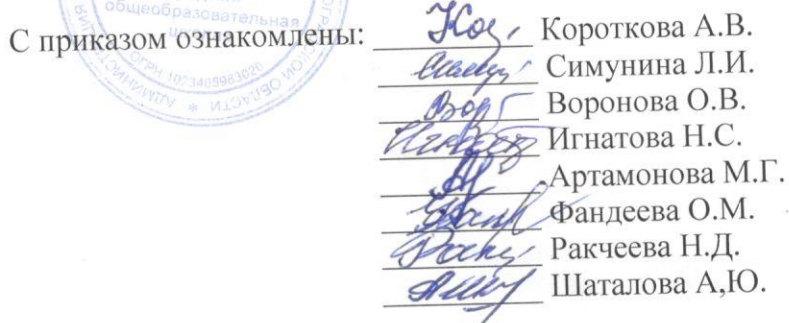 общеобразовательная
школа
ОГРН 1023405963020
С приказом ознакомлены: Короткова А.В.
Симунина Л.И.
Воронова О.В.
Игнатова Н.С.
Артамонова М.Г.
Фандеева О.М.
Ракчеева Н.Д.
Шаталова А,Ю.